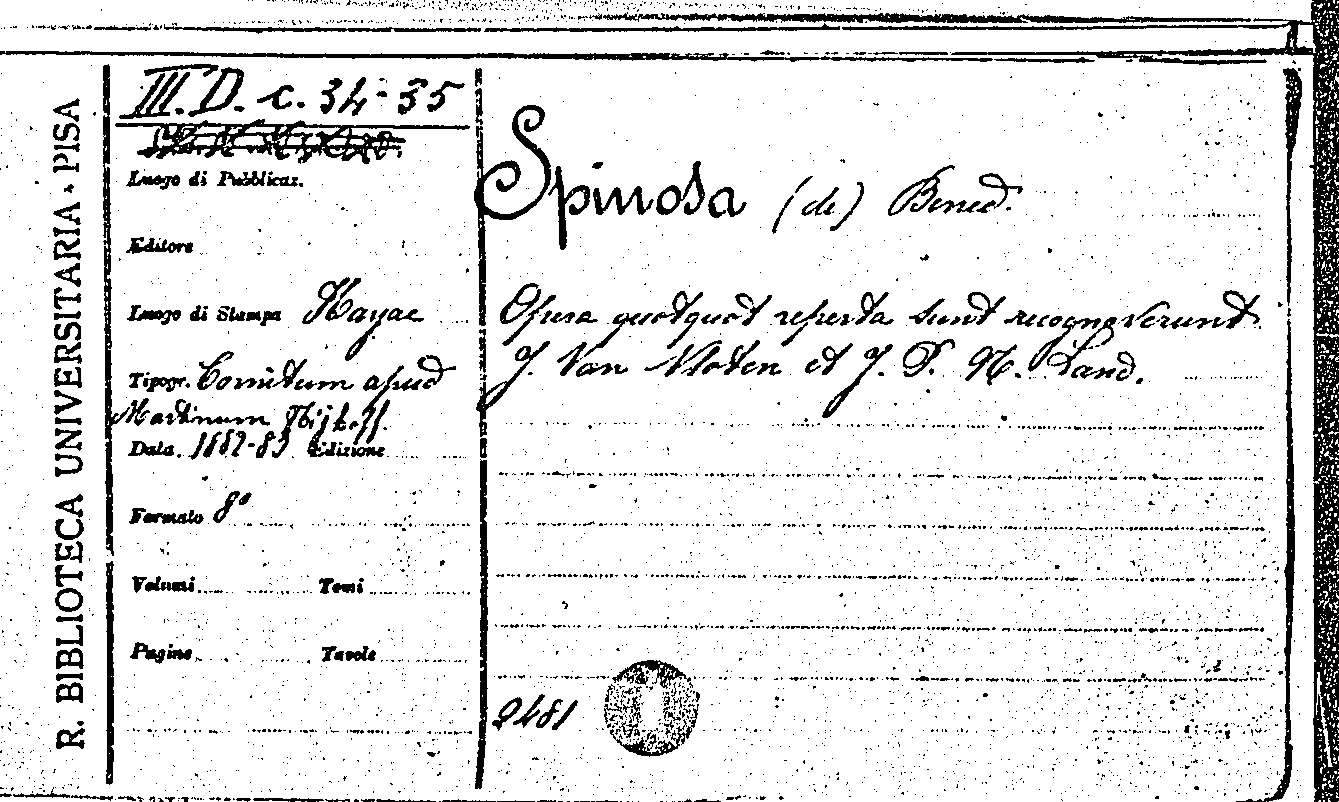 R. BIBLIOTECA UNIVERSITARIA - PISA
III. D. c. 34-35
Luogo di Pubblicaz.
Editore
Luogo di Stampa Hagae
Tipogr. Comitum apud
Martinum Nijhoff.
Data 1882-83 Edizione
Formato 8°
Volumi Tomi
Pagine Tavole
Spinosa (de) Bened.
Opera quotquot reperta sunt recognoverunt
J. Van Vloten et J. P. N. Land.
2481